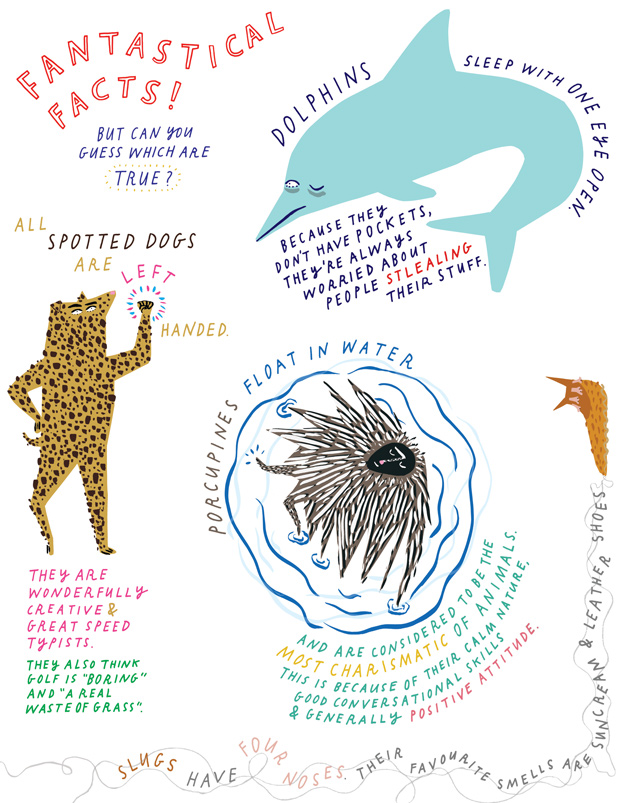 FANTASTICAL
FACTS!
BUT CAN YOU
GUESS WHICH ARE
TRUE?
DOLPHINS
SLEEP WITH ONE EYE OPEN.
BECAUSE THEY
DON'T HAVE POCKETS,
THEY'RE ALWAYS
WORRIED ABOUT
PEOPLE STLEALING
THEIR STUFF.
ALL
SPOTTED DOGS
ARE
LEFT
HANDED.
THEY ARE
WONDERFULLY
CREATIVE &
GREAT SPEED
TYPISTS.
THEY ALSO THINK
GOLF IS "BORING"
AND "A REAL
WASTE OF GRASS".
PORCUPINES FLOAT IN WATER
AND ARE CONSIDERED TO BE THE
MOST CHARISMATIC OF ANIMALS.
THIS IS BECAUSE OF THEIR CALM NATURE,
GOOD CONVERSATIONAL SKILLS
& GENERALLY POSITIVE ATTITUDE.
SLUGS HAVE FOUR NOSES. THEIR FAVOURITE SMELLS ARE SUNCREAM & LEATHER SHOES.